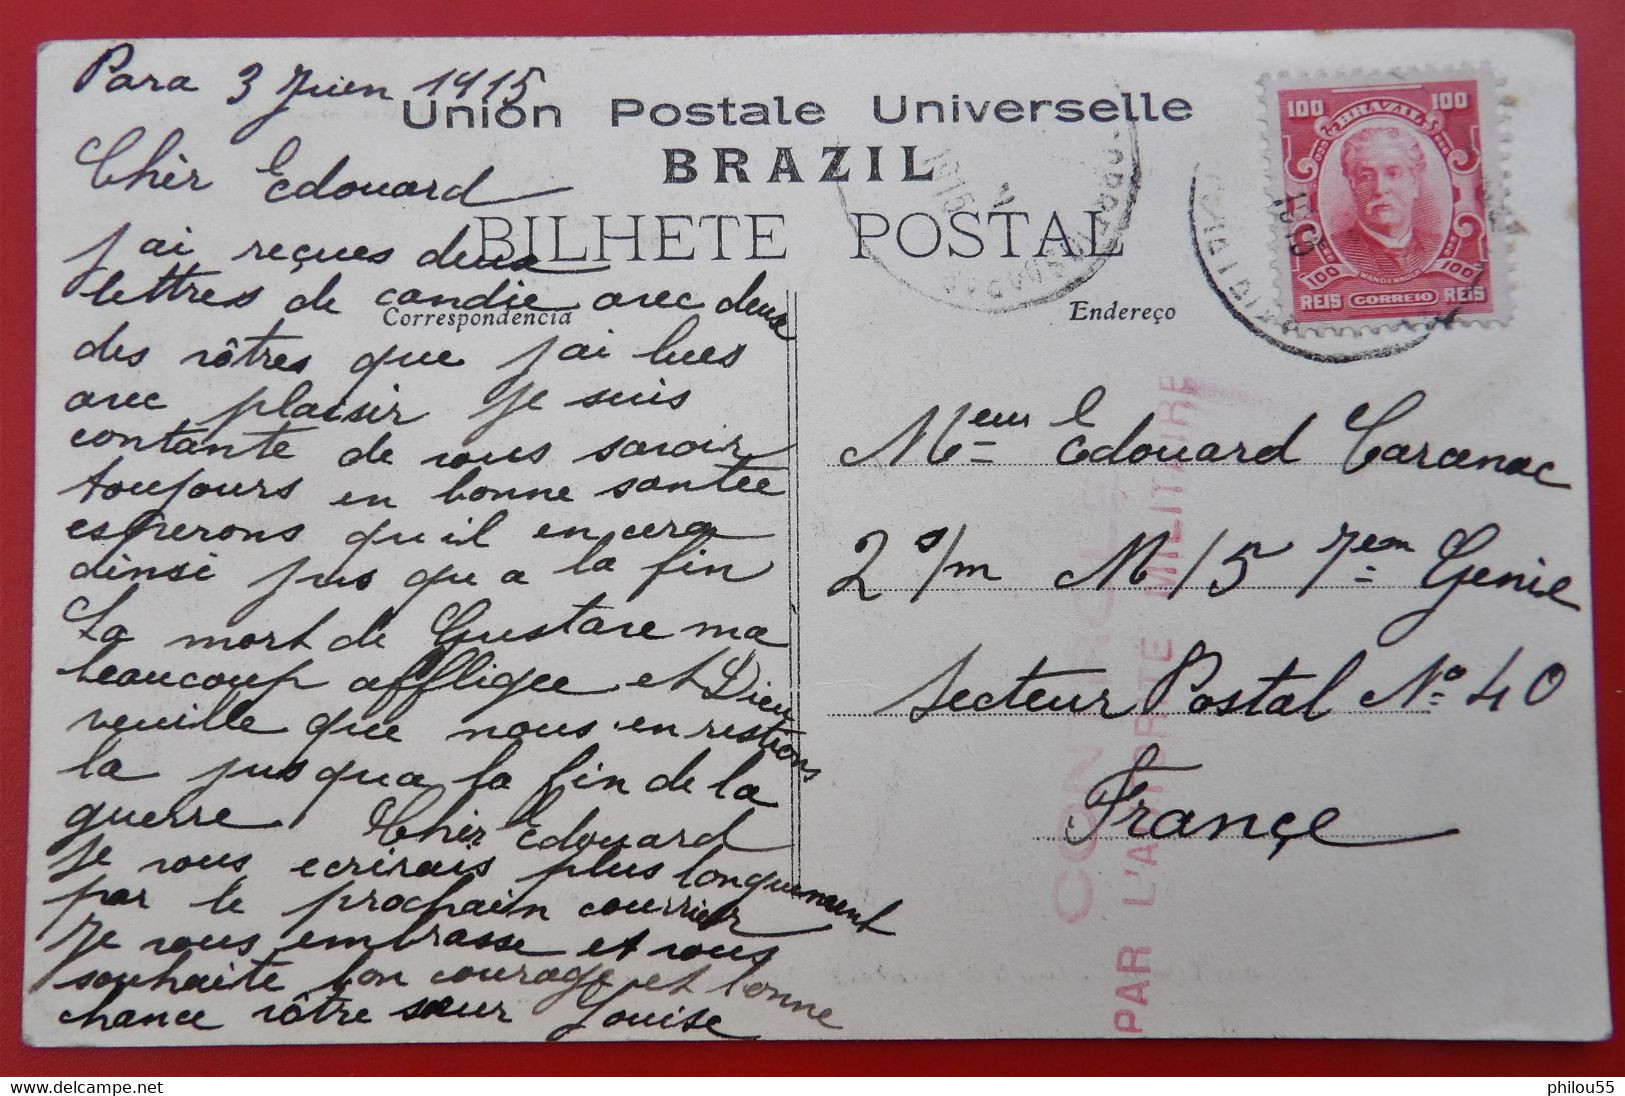 Para 3 Juien 1915
Union Postale Universelle
BRAZIL
BILHETE POSTAL
Correspondencia
Endereço
100 BRAZIL 100
WANDENKOLK
100 100
REIS CORREIO REIS
Chèr Edouard
j'ai reçues deux
lettres de candie avec deux
des vôtres que j'ai lues
avec plaisir je suis
contante de vous savoir
toujours en bonne santée
esperons qu'il en cera
dinsi jus qu a la fin
La mort de Gustave ma
beaucoup affligee et Dieu
veuille que nous en restions
la jus qu a la fin de la
guerre Chèr Edouard
Je vous ecrirais plus longuement
par le prochain courrier
Je vous embrasse et vous
souhaite bon courage et bonne
chance vôtre sœur Louise
Meur Edouard Caranac
2 s/m M/5 7em Genie
Secteur Postal No 40
Françe
CONTROLE
PAR L'AUTORITÉ MILITAIRE
1915
philou55